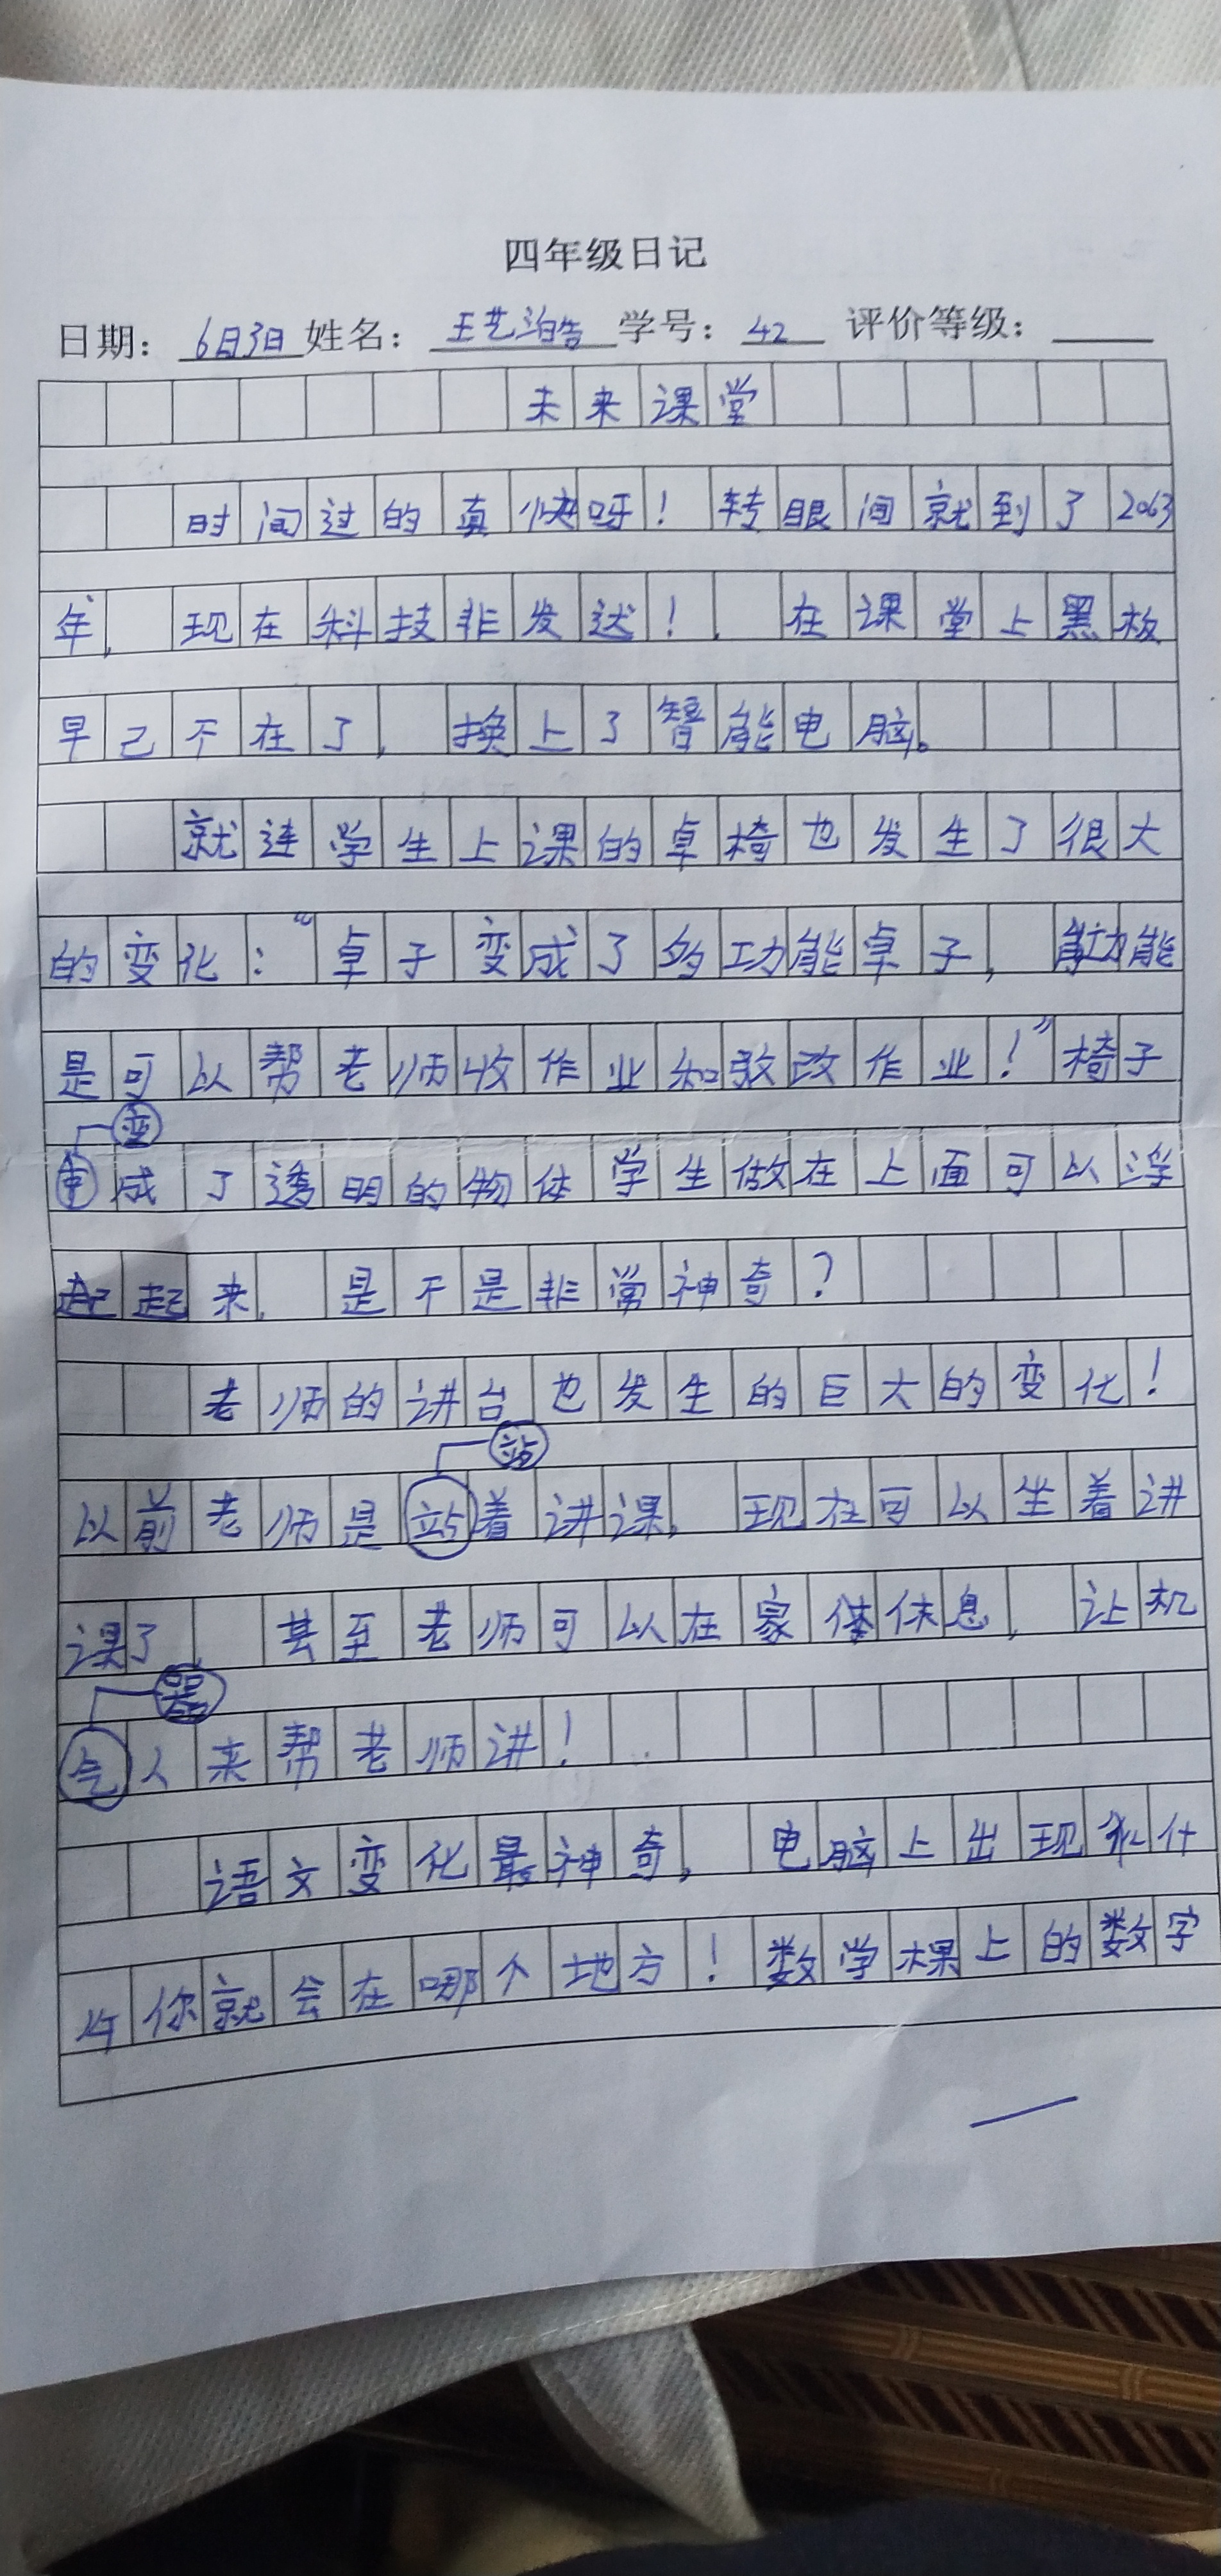 四年级日记
日期：6月3日 姓名：王艺浩 学号：42 评价等级：
未来课堂
时间过的真快呀！转眼间就到了2063
年，现在科技非发达！，在课堂上黑板
早己不在了，换上了智能电脑。
就连学生上课的卓椅也发生了很大
的变化：“卓子变成了多功能卓子，功能
是可以帮老师收作业和改作业！”椅子
变
成了透明的物体学生做在上面可以浮
起来，是不是非常神奇？
老师的讲台也发生的巨大的变化！
站
以前老师是站着讲课，现在可以坐着讲
课了，甚至老师可以在家休息，让机
器
气人来帮老师讲！
语文变化最神奇，电脑上出现什
你就会在哪个地方！数学棵上的数字